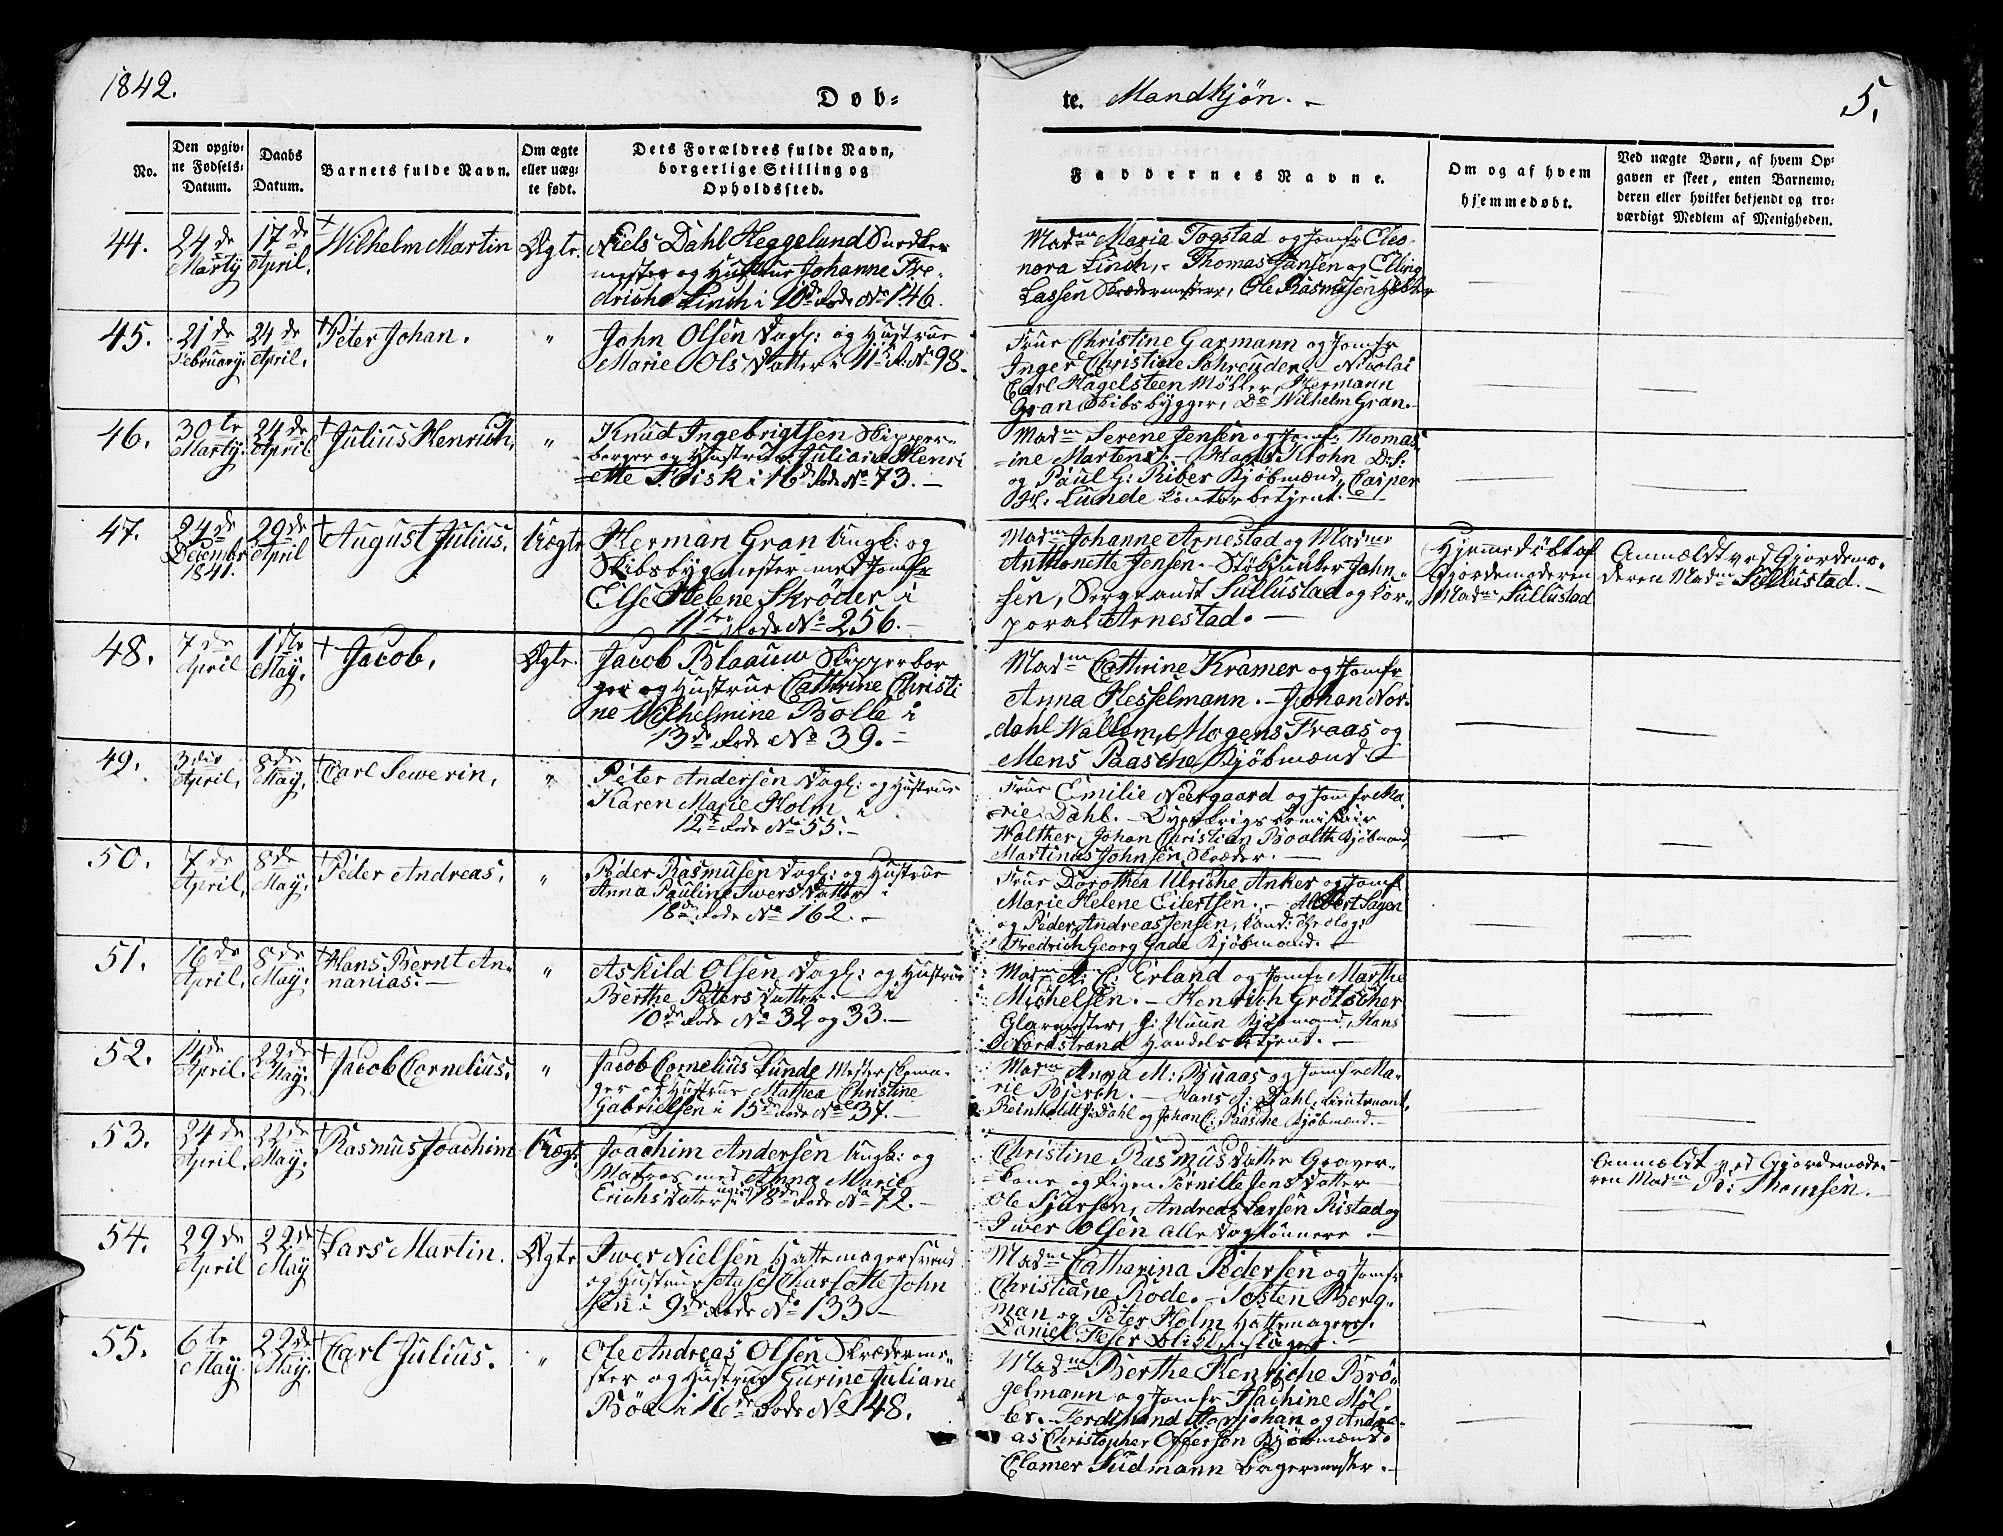 1842.
Døb-
te. Mandkjøn. -
5.
No.
Den opgiv-
ne Fødsels-
Datum.
Daabs
Datum.
Barnets fulde Navn.
Om ægte
eller uæg-
te født.
Dets Forældres fulde Navn,
borgerlige Stilling og
Opholdssted.
Faddernes Navne.
Om og af hvem
hjemmedøbt.
Ved uægte Børn, af hvem Op-
gaven er skeet, enten Barnemo-
deren eller hvilket bekjendt og tro-
værdigt Medlem af Menigheden.
44.
24de
Martj
17de
April.
+ Wilhelm Martin
Ægte.
Niels Dahl Heggelund Snedker
mester og Hustrue Johanne Fre-
driche Linch i 10de Rode No 146.
Madme Maria Togstad og Jomfr Eleo-
nora Linch, - Thomas Jansen og Elling
Lassen Skrædermestere, Ole Rasmusen Høker
45.
21de
February.
24de
April.
+ Peter Johan.
"
John Olsen Dagl: og Hustrue
Marie Ols Datter i 11te R. No 98.
Frue Christine Garmann og Jomfr
Inger Christine Schreuder - Nicolai
Carl Hagelsteen Møller, Hermann
Gran Skibsbygger, Do Wilhelm Gran.-
46.
30te
Martj.
24de
April
+ Julius Henrich,
"
Knud Ingebrigtsen Skipper-
borger og Hustrue Juliane Henri
ette Fdisk i 16de Rode No 73. -
Madme Serene Jensen og Jomfr Thomas-
ine Martens. - Hans Krohn D:S:
og Paul G: Riber Kjøbmænd, Casper
H. Lunde Contorbetjent. -
47.
24de
Decembr
1841.
29de
April
+ August Julius.
Uægte
Herman Gran Ungk: og
Skibsbygmester med Jomfr
Else Helene Skrøder i
11te Rode No 256. -
Madme Johanne Arnestad og Madme
Anthonette Jensen - Støkjunker John-
sen, Sergeandt Sullustad og Cor-
poral Arnestad. -
Hjemmedöbt af
Gjordemoderen
Madme Sullustad
Anmældt ved Gjordemo-
deren Madme Sullustad. -
48.
7de
April
1ste
May.
+ Jacob,
Ægte.
Jacob Blaauw Skipperbor
ger og Hustrue Cathrine Christi
ne Wilhelmine Bolle i
13de Rode No 39. -
Madme Cathrine Kramer og Jomfr
Anna Hesselmann. - Johan Nor-
dahl Wallem, Mogens Fraas og
Mens Paasche Kjøbmænd -
49.
3die
April.
8de
May.
+ Carl Sewerin,
"
Peter Andersen Dagl: og Hustrue
Karen Marie Holm i
12te Rode No 55. -
Frue Emilie Neergaard og Jomfr Ma-
rie Dahl. -
Walther, Johan Christian Boalth Kjøbmand,
Martinus Johnsen Skræder. -
50.
7de
April.
8de
May.
+ Peder Andreas,
"
Peder Rasmusen Dagl: og Hustrue
Anna Pauline Iwers Datter i
18de Rode No 162. -
Frue Dorothea Ulriche Anker og Jomfr
Marie Helene Eilertsen. - Albert Sagen
og Peder Andreas Jensen, Cand: theolog:
Fredrich Georg Gade Kjøbmand. -
51.
16de
April.
8de
May.
+ Hans Bernt An-
nanias. -
"
Askild Olsen Dagl: og Hustrue
Berthe Peters Datter. i
10de Rode No 32 og 33. -
Madme A: C: Erland og Jomfr Marthe
Michelsen. - Henrich Grötscher
Glarmester, J: Huun Kjøbmand, Hans
Nordstrand Handelsbetjent. -
52.
14de
April.
22de
May.
+ Jacob Cornelius.
"
Jacob Cornelius Lunde Mesterskoma-
ger og Hustrue Mathea Christine
Gabrielsen i 15de Rode No 37. -
Madme Anna M: Buaas og Jomfr Ma-
rie Bjerch. - Hans J: Dahl, Lieutenant,
Reinholdt J: Dahl og Johan C: Paasche Kjøbmænd. -
53.
24de
April.
22de
May.
+ Rasmus Joachim
Uægt.
Joachim Andersen Ungk: og
Matros med Anna Marie
Erichs Datter ugivt i 18de Rode No 72. -
Christine Rasmus Datter Graver-
kone og Pigen Pernille Jens Datter
Ole Sjursen, Andreas Larsen Ristad og
Iwer Olsen alle Daglönnere. -
Anmældt ved Gjordemode-
ren Madme B: Thomsen. -
54.
29de
April
22de
May
+ Lars Martin.
Ægte
Iwer Nielsen Hattemagersvend
og Hustrue Anse Charlotte John
sen i 9de Rode No 133 -
Madme Catharina Pedersen og Jomfr
Christiane Rode. - Tosten Berg-
man og Peter Holm Hattemagere.
Daniel Feser Blikkenslager
55.
6te
May.
22de
May.
+ Carl Julius.
"
Ole Andreas Olsen Skræderme-
ster og Hustrue Gurine Juliane
Böe i 16de Rode No 148.
Madme Berthe Henriche Brö-
gelmann og Jomfr Hachine Møl-
ler. - Ferdinand Storjohan og Andre-
as Christopher Offersen Kjøbmænd
Clamer Sudmann Bagermester. -